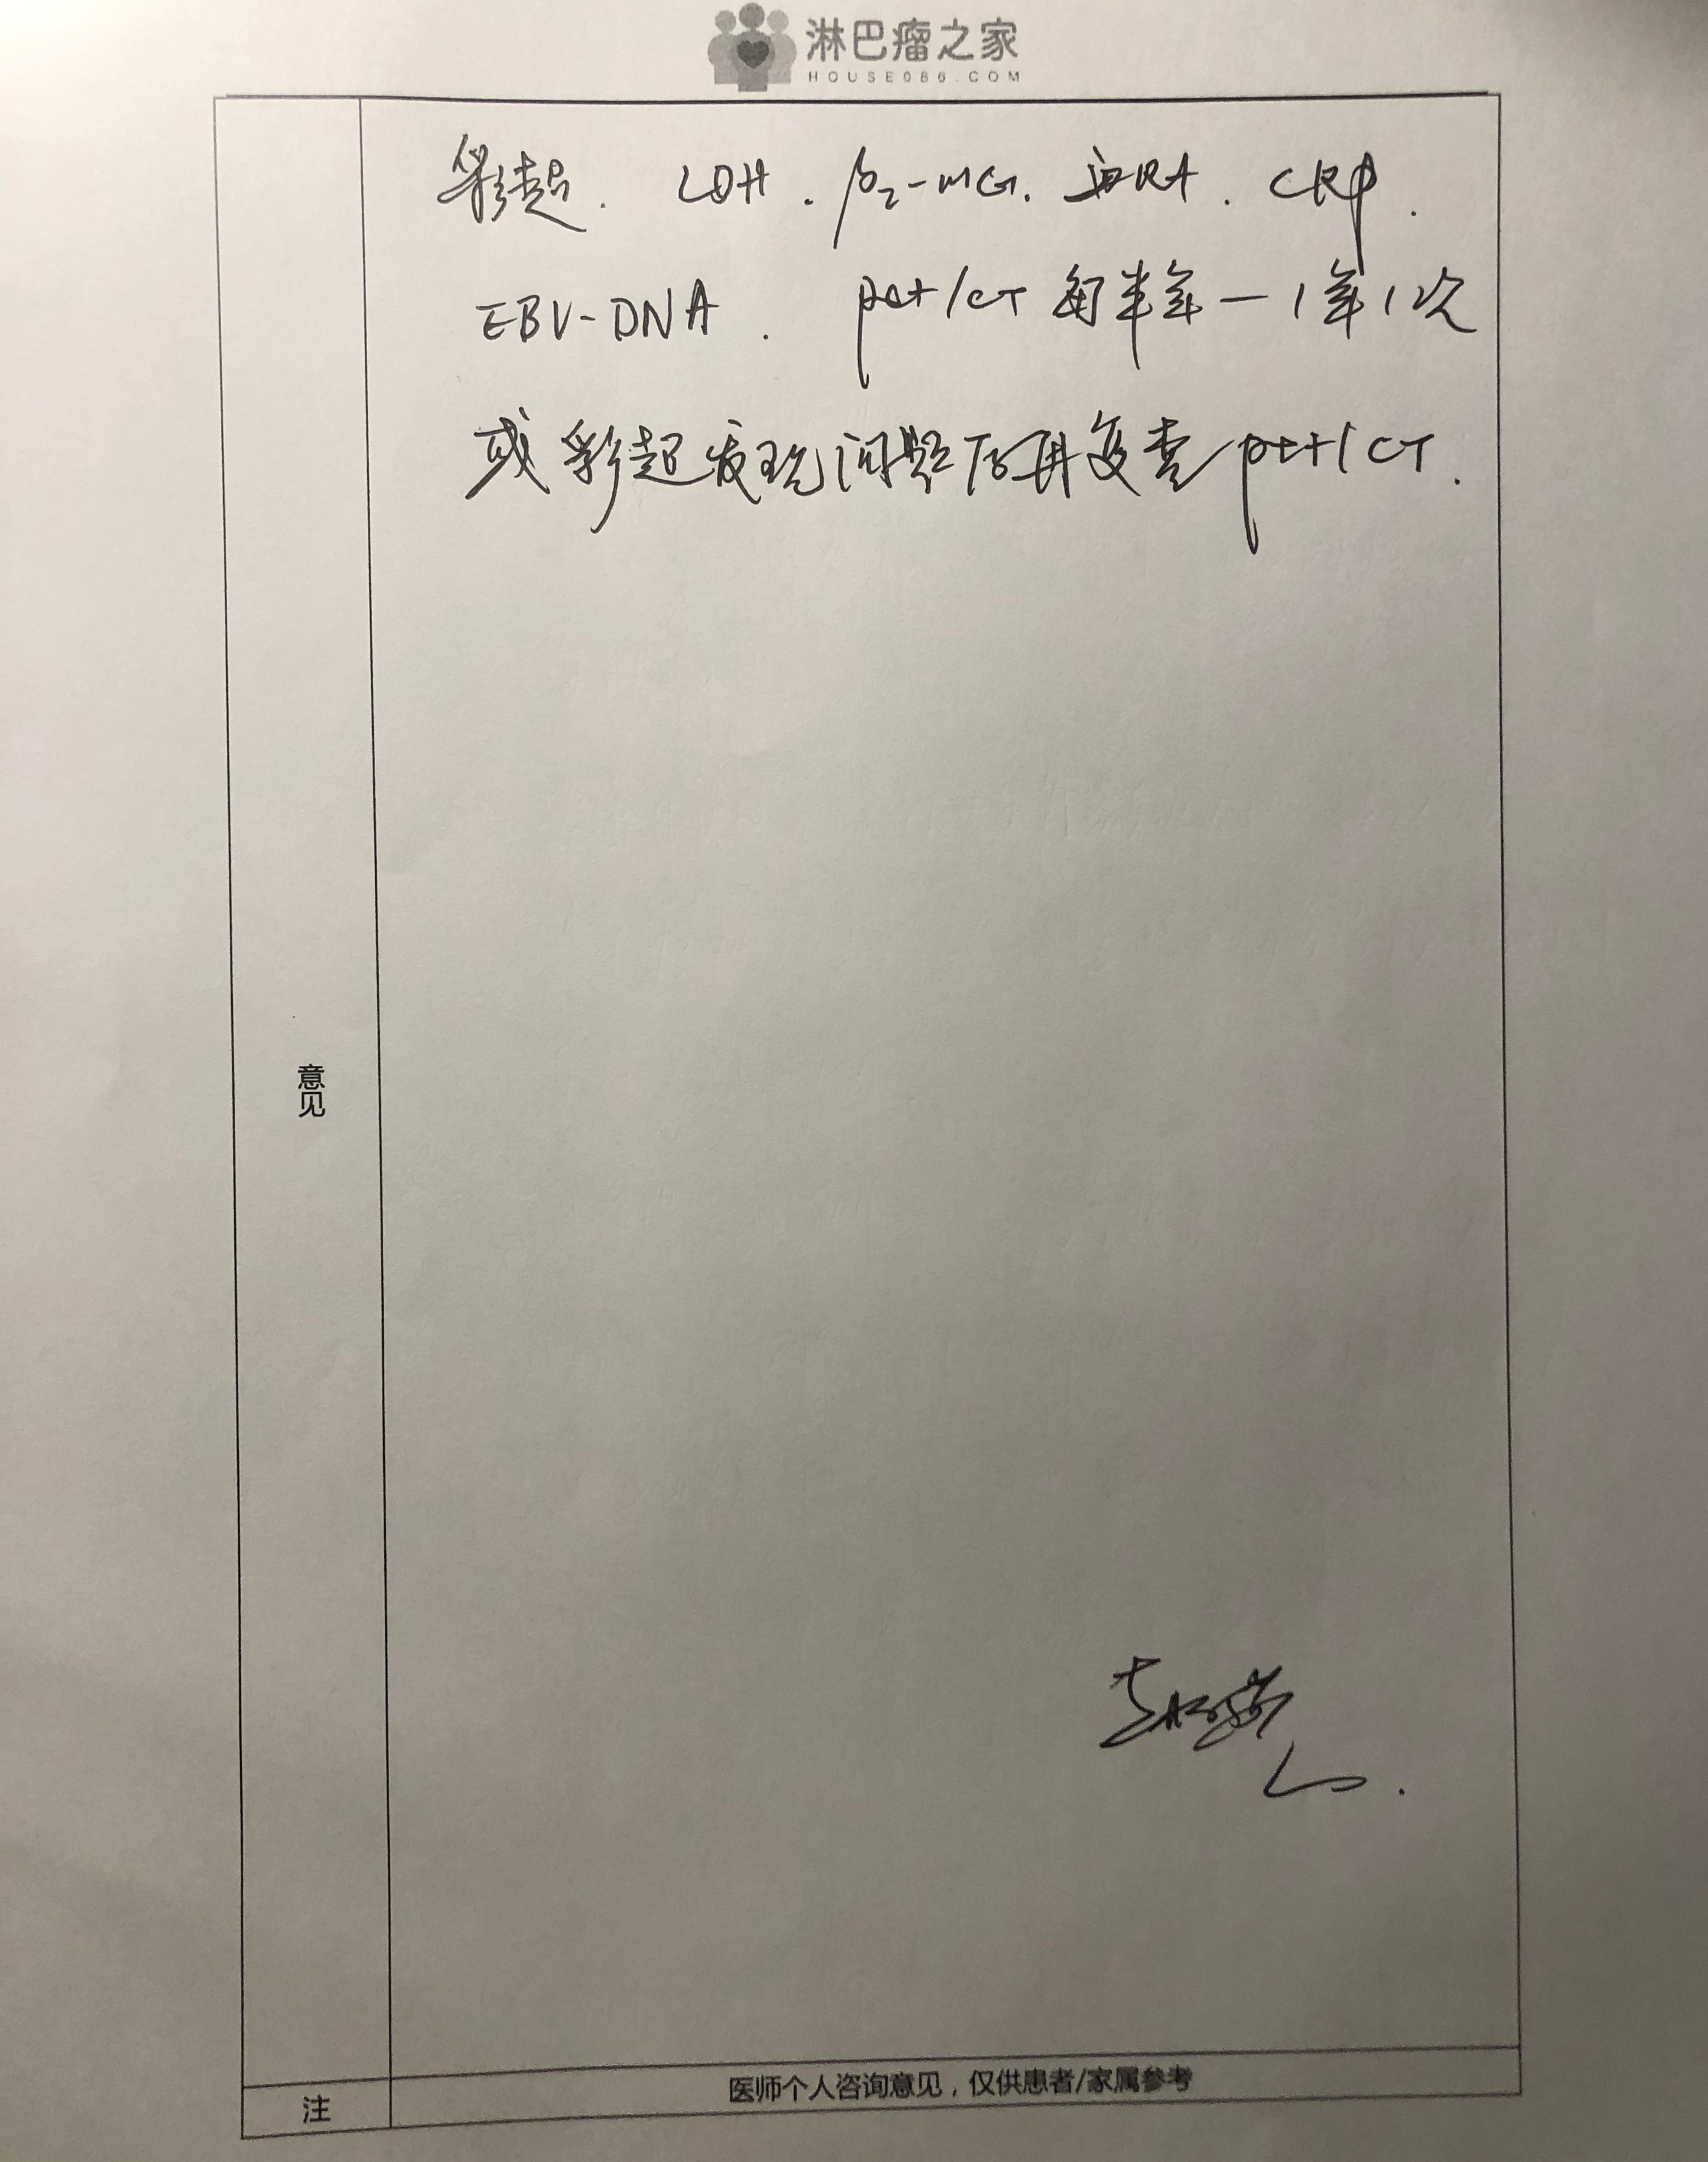 淋巴瘤之家
HOUSE086.COM
彩超. LDH. β₂-MG. 血RA. CRP.
EBV-DNA. pet/CT 每半年—1年1次
或彩超发现问题后再复查pet/CT.
意见
注
医师个人咨询意见，仅供患者/家属参考